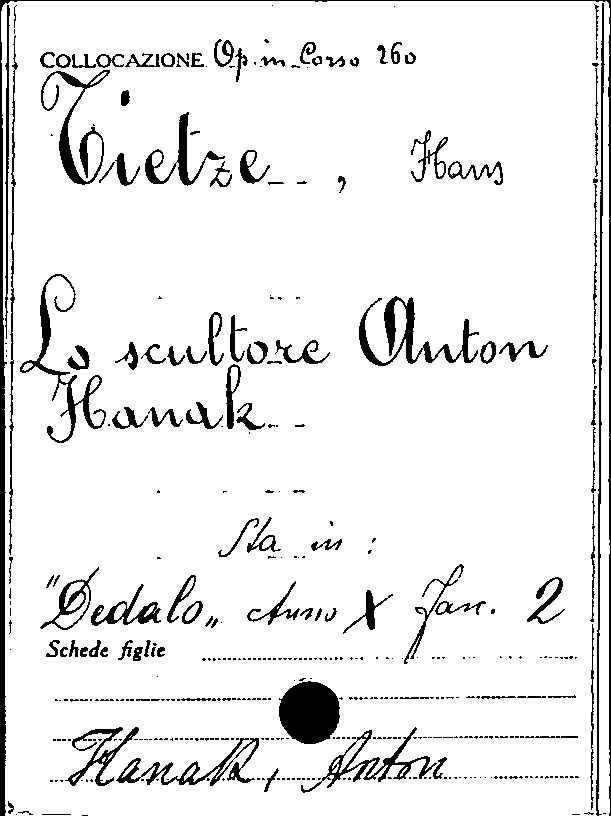 COLLOCAZIONE Op. in Corso 260
Tietze, Hans
Lo scultore Anton
Hanak
Sta in :
"Dedalo„ Anno X Fasc. 2
Schede figlie
Hanak, Anton